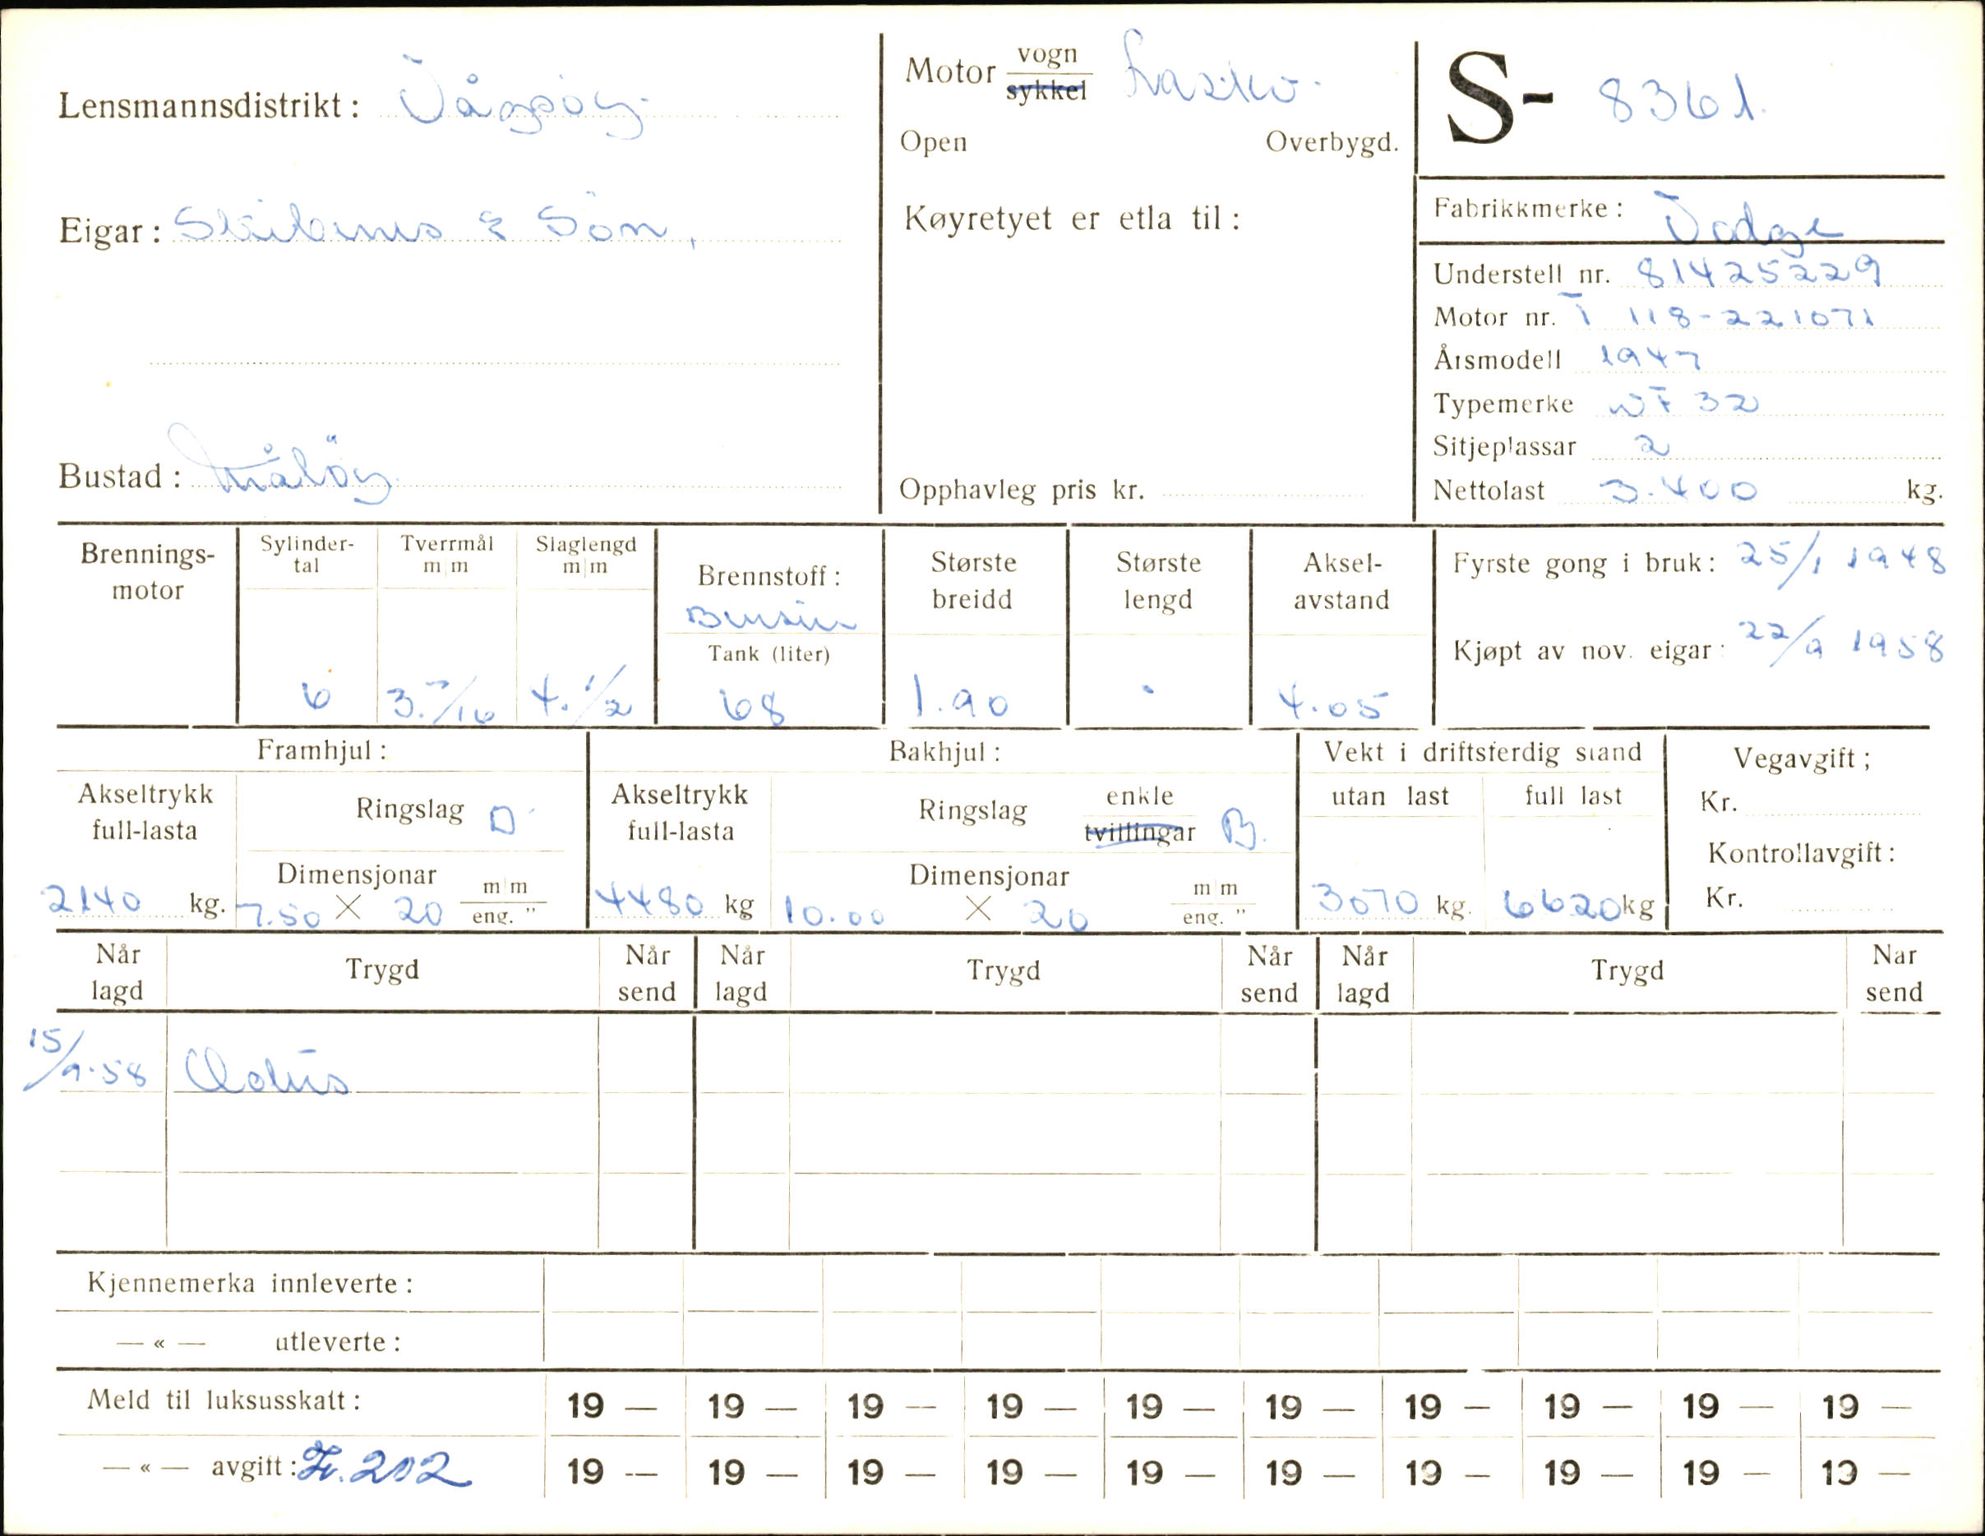 Lensmannsdistrikt: Vågsöy.
Motor vogn
sykkel
Lastev.
S- 8361.
Open Overbygd.
Eigar: & Sön,
Køyretyet er etla til:
Fabrikkmerke: Dodge
Understell nr. 81425229
Motor nr. T 118-221071
Årsmodell 1947
Typemerke WF 32
Sitjeplassar 2
Bustad: Måløy
Opphavleg pris kr.
Nettolast 3.400 kg.
Brennings-
motor
Sylinder-
tal
6
Tverrmål
m|m
3.7/16
Slaglengd
m|m
4.1/2
Brennstoff:
Bensin
Tank (liter)
68
Største
breidd
1.90
Største
lengd
Aksel-
avstand
4.05
Fyrste gong i bruk: 25/1 1948
Kjøpt av nov. eigar: 22/9 1958
Framhjul:
Akseltrykk
full-lasta
2140 kg.
Ringslag D
Dimensjonar
7.50 X 20 m|m
eng. "
Bakhjul:
Akseltrykk
full-lasta
4480 kg
Ringslag enkle
tvillingar B.
Dimensjonar
10.00 X 20 m|m
eng. "
Vekt i driftsferdig stand
utan last full last
3070 kg. 6620 kg
Vegavgift;
Kr.
Kontrollavgift:
Kr.
Når
lagd
Trygd
Når
send
Når
lagd
Trygd
Når
send
Når
lagd
Trygd
Nar
send
15/9.58
Kjennemerka innleverte:
— « — utleverte:
Meld til luksusskatt: 19 — 19 — 19 — 19 — 19 — 19 — 19 — 19 — 19 — 19 —
— « — avgift: 202 19 — 19 — 19 — 19 — 19 — 19 — 19 — 19 — 19 — 19 —